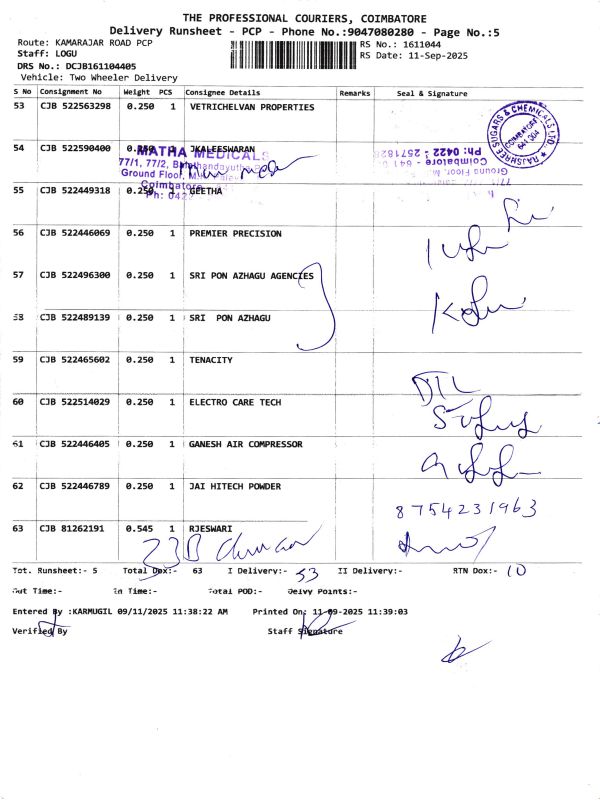 THE PROFESSIONAL COURIERS, COIMBATORE
Delivery Runsheet - PCP - Phone No.:9047080280 - Page No.:5
Route: KAMARAJAR ROAD PCP
RS No.: 1611044
Staff: LOGU
RS Date: 11-Sep-2025
DRS No.: DCJB161104405
Vehicle: Two Wheeler Delivery
S No Consignment No Weight PCS Consignee Details Remarks Seal & Signature
53 CJB 522563298 0.250 1 VETRICHELVAN PROPERTIES
RAJSHREE SUGARS & CHEMICALS LTD.
COIMBATORE
641 304
54 CJB 522590400 1 JKALEESWARAN
MATHA MEDICALS
77/1, 77/2,
Ground Floor,
Coimbatore
Ph: 042
Ph: 0422 - 2571828
Coimbatore - 641 0
Ground Floor,
55 CJB 522449318 0.250 GEETHA
56 CJB 522446069 0.250 1 PREMIER PRECISION
57 CJB 522496300 0.250 1 SRI PON AZHAGU AGENCIES
58 CJB 522489139 0.250 1 SRI PON AZHAGU
59 CJB 522465602 0.250 1 TENACITY
60 CJB 522514029 0.250 1 ELECTRO CARE TECH
61 CJB 522446405 0.250 1 GANESH AIR COMPRESSOR
62 CJB 522446789 0.250 1 JAI HITECH POWDER
8754231963
63 CJB 81262191 0.545 1 RJESWARI
Tot. Runsheet:- 5 Total Dox:- 63 I Delivery:- 53 II Delivery:- RTN Dox:- 10
Out Time:- In Time:- Total POD:- Delvy Points:-
Entered By :KARMUGIL 09/11/2025 11:38:22 AM Printed On: 11-09-2025 11:39:03
Verified By Staff Signature